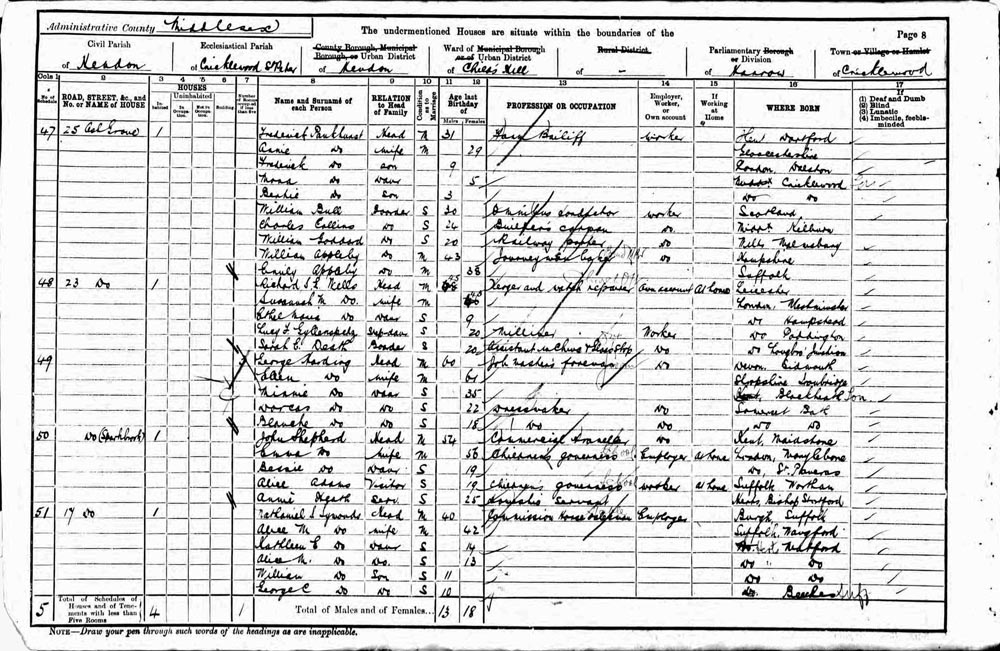 Administrative County Middlesex
The undermentioned Houses are situate within the boundaries of the
Page 8
Civil Parish of Hendon
Ecclesiastical Parish of Cricklewood St Peter
County Borough, Municipal Borough, or Urban District of Hendon
Ward of Municipal Borough or of Urban District of Childs Hill
Rural District of -
Parliamentary Borough or Division of Harrow
Town or Village or Hamlet of Cricklewood
Cols 1 2 3 4 5 6 7 8 9 10 11 12 13 14 15 16 17
No. of Schedule
ROAD, STREET, &c., and No. or NAME of HOUSE
HOUSES
Inhabited
Uninhabited
In Occupation
Not in Occupation
Building
Number of Rooms occupied if less than five
Name and Surname of each Person
RELATION to Head of Family
Condition as to Marriage
Age last Birthday of
Males Females
PROFESSION OR OCCUPATION
Employer, Worker, or Own account
If Working at Home
WHERE BORN
If (1) Deaf and Dumb (2) Blind (3) Lunatic (4) Imbecile, feeble-minded
47 25 Grove 1 Frederick Head M 31 Farm Bailiff worker Kent Dartford
Annie Do wife M 29 Gloucestershire
Frederick Do son 9 London, Dalston
Do Daur 5 Cricklewood
Bertie Do Son 3 Do Do
William Bull Boarder S 30 Omnibus conductor worker Scotland
Charles Collins Do S 24 Do Middx Kilburn
William Goddard Do S 20 Railway porter Do Wilts Malmsbury
William Appleby Do M 43 Journeyman Do Hampshire
Emily Appleby Do M 38 Suffolk
48 23 Do 1 Richard Wells Head M and watch repairer Own account At home Leicester
Susannah M. Do. wife M London, Westminster
Ethel Do Daur S 9 Do Hampstead
Lucy Step-daur S 20 Milliner Worker Do Paddington
Sarah E. Death Boarder S 20 Assistant in China & Glass Shop Do Do
49 George Harding Head M 60 Job master's foreman Do Devon, Sidmouth
Ellen Do wife M 61 Shropshire
Minnie Do Daur S 35 Kent, Blackheath Lon
Dorcas Do Do S 22 Dressmaker Do Somerset Bath
Blanche Do Do S 18 Do Do Do Do
50 Do 1 John Shepherd Head M 54 Commercial traveller Do Kent, Maidstone
Emma Do wife M 56 Children's governess Employer At home London, Marylebone
Bessie Do Daur S 19 Do, St. Pancras
Alice Adams Visitor S 19 Children's governess worker At home Suffolk Wortham
Annie Heath Serv. S 25 Domestic Servant Herts, Bishop Stortford
51 17 Do 1 Nathaniel Symonds Head M 40 Commission Employer Burgh, Suffolk
Alice M. Do wife M 42 Suffolk, Wangford
Kathleen E Do Daur S 14
Alice M. Do Do. S 13 Do Do
William Do Son S 11 Do Do
George C Do Do S 10 Do. Beccles Suff
5 Total of Schedules of Houses and of Tenements with less than Five Rooms 4 1 Total of Males and of Females... 13 18
NOTE—Draw your pen through such words of the headings as are inapplicable.